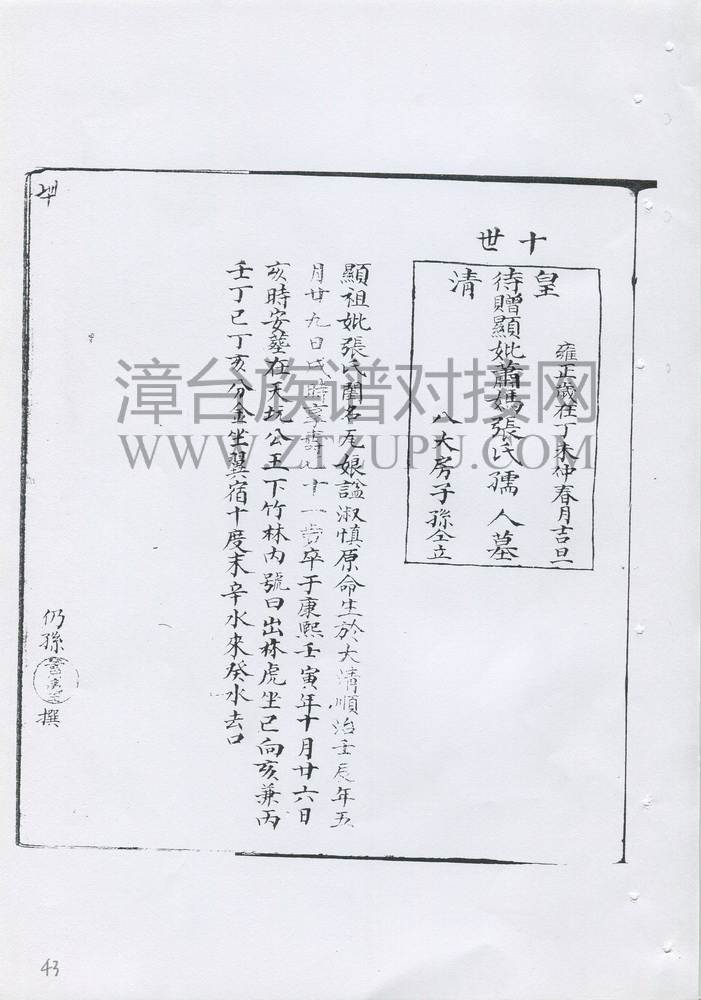 十世
皇清
雍正歲在丁未仲春月吉旦
待贈顯妣蕭媽張氏孺人墓
八大房子孫仝立
顯祖妣張氏閨名 娘諡淑慎原命生於大清順治壬辰年五
月廿九日戌時享壽 十一歲卒于康熙壬寅年十月廿六日
亥時安葬在天坑公王下竹林內號曰出林虎坐巳向亥兼丙
壬丁巳丁亥分金坐翼宿十度末辛水來癸水去口
仍孫 撰
漳台族谱对接网
WWW.ZTZUPU.COM
43